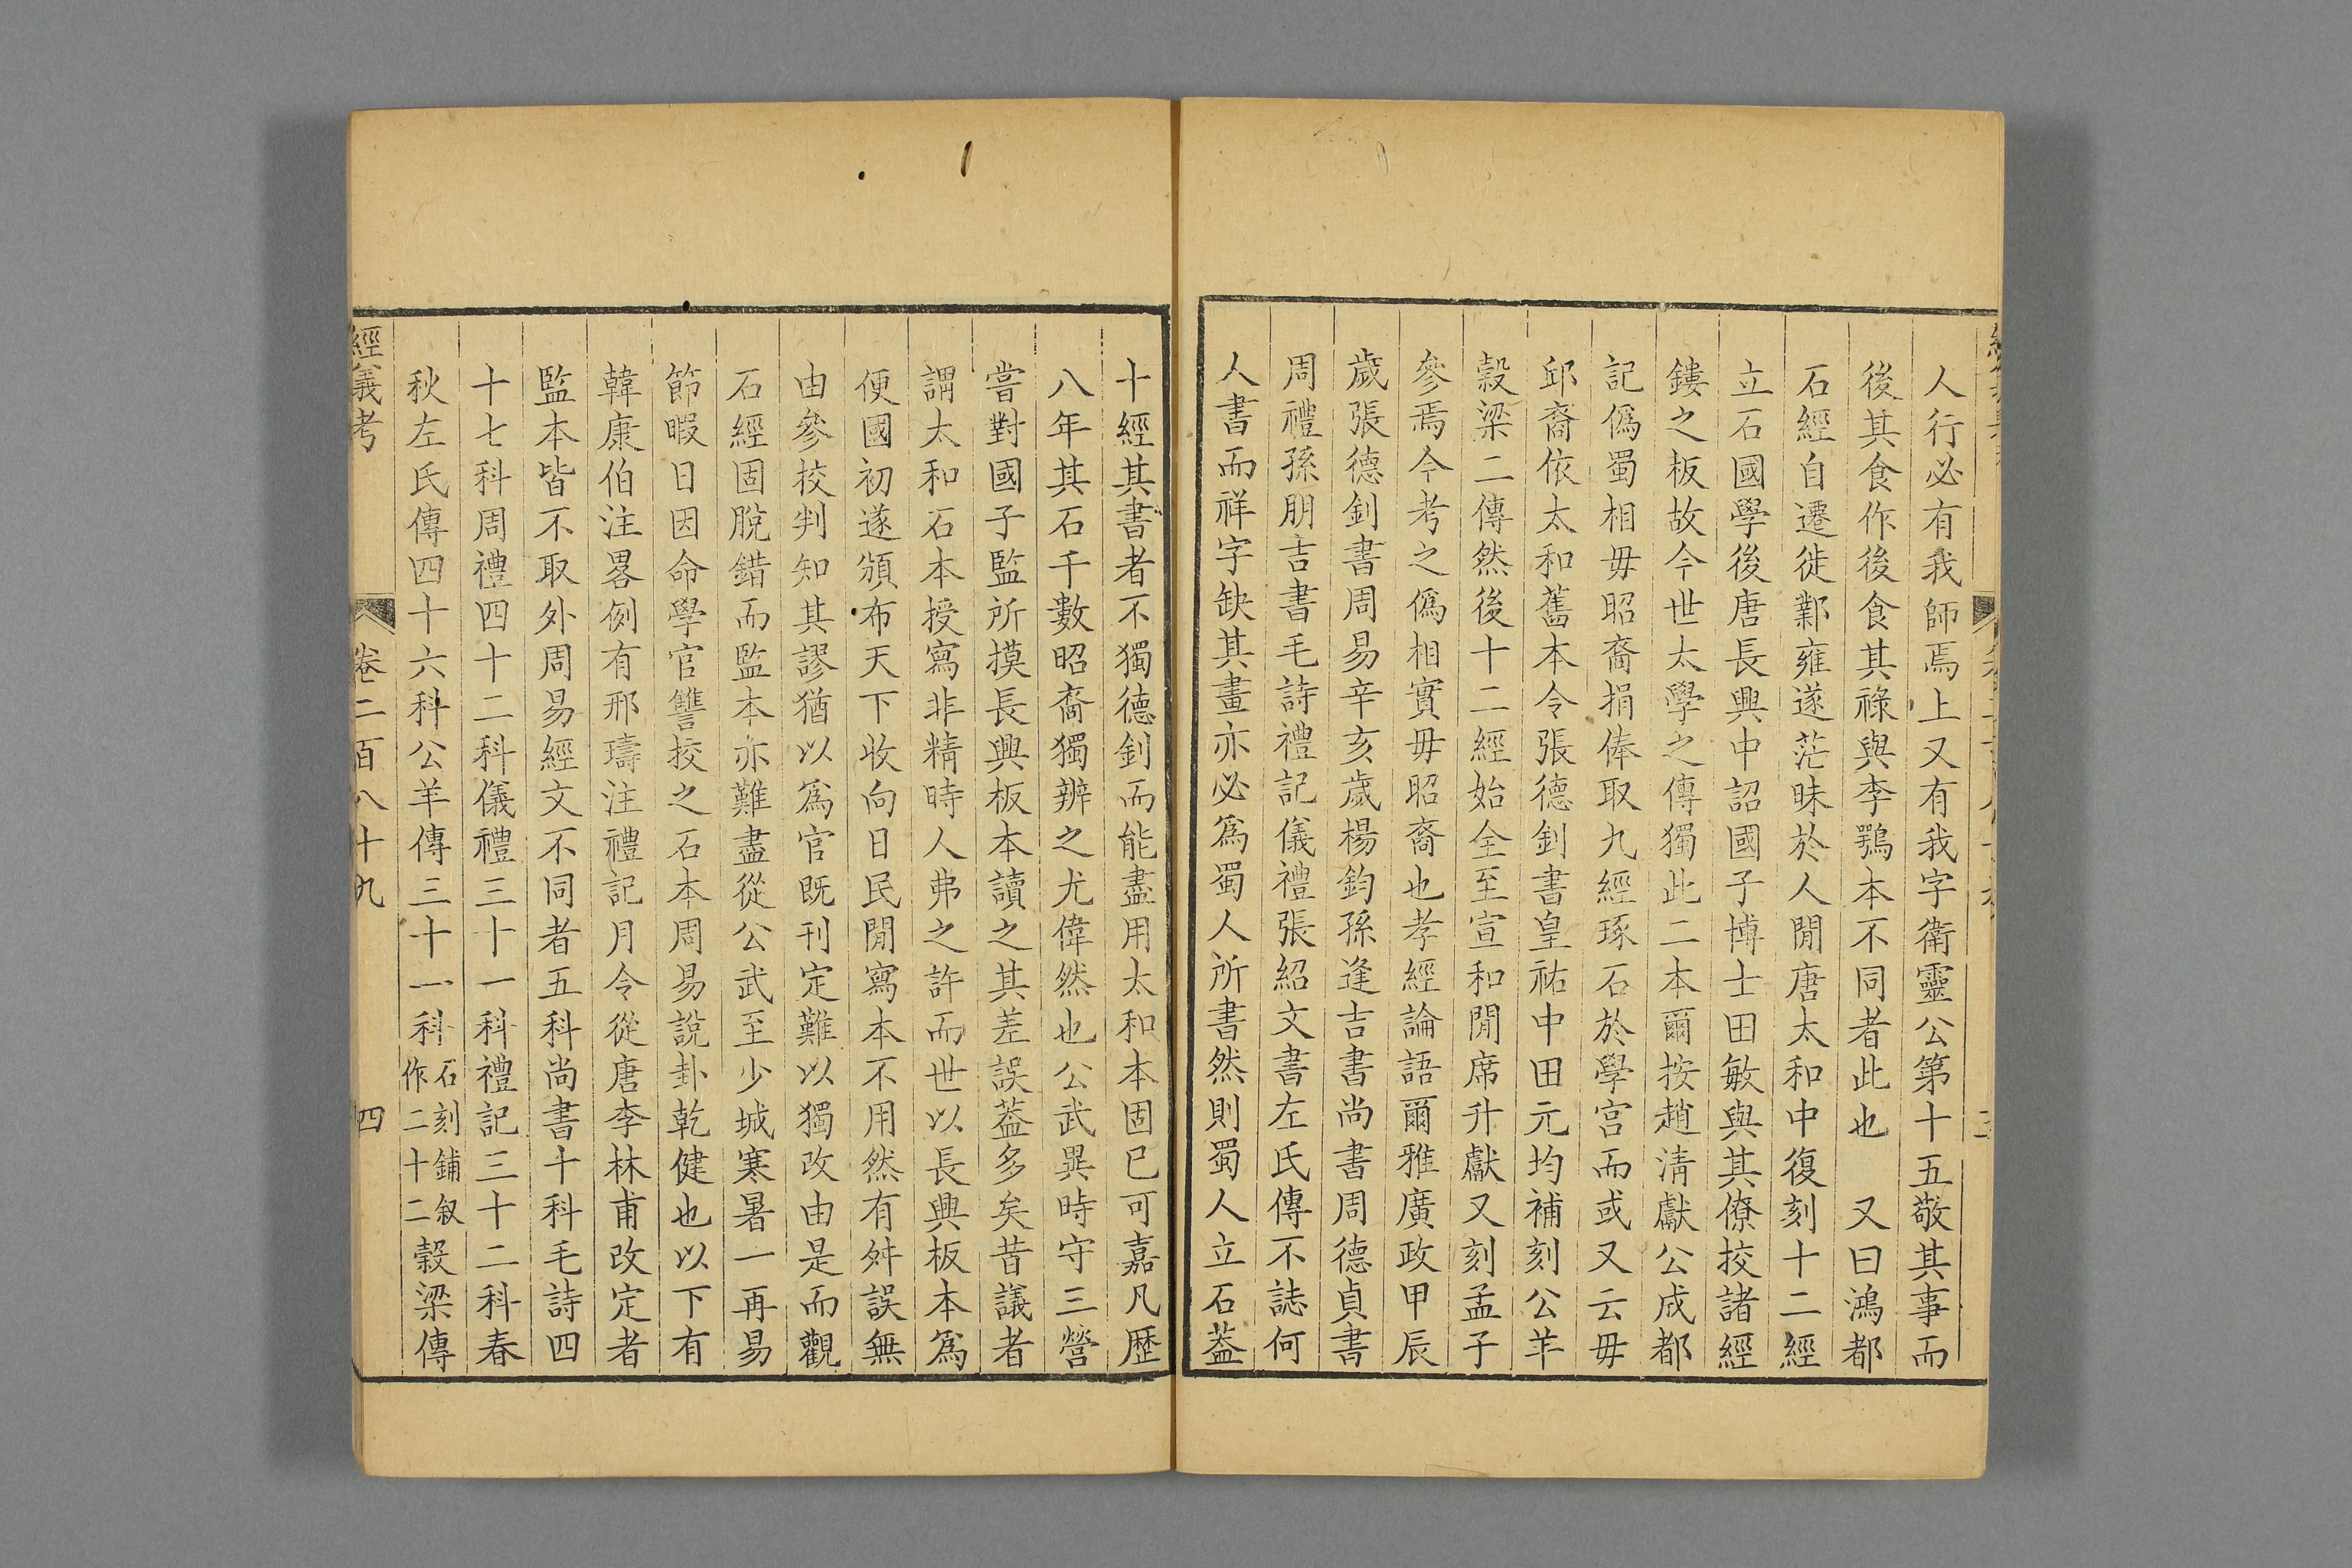 人行必有我師焉上又有我字衛靈公第十五敬其事而
後其食作後食其祿與李鶚本不同者此也　又曰鴻都
石經自遷徙鄴雍遂茫昧於人閒唐太和中復刻十二經
立石國學後唐長興中詔國子博士田敏與其僚挍諸經
鏤之板故今世太學之傳獨此二本爾按趙清獻公成都
記僞蜀相毋昭裔捐俸取九經琢石於學宫而或又云毋
邱裔依太和舊本令張德釗書皇祐中田元均補刻公羊
穀梁二傳然後十二經始全至宣和閒席升獻又刻孟子
參焉今考之僞相實毋昭裔也孝經論語爾雅廣政甲辰
歲張德釗書周易辛亥歲楊鈞孫逢吉書尚書周德貞書
周禮孫朋吉書毛詩禮記儀禮張紹文書左氏傳不誌何
人書而祥字缺其畫亦必爲蜀人所書然則蜀人立石葢
十經其書者不獨德釗而能盡用太和本固已可嘉凡歷
八年其石千數昭裔獨辨之尤偉然也公武異時守三營
嘗對國子監所摸長興板本讀之其差誤葢多矣昔議者
謂太和石本授寫非精時人弗之許而世以長興板本爲
便國初遂頒布天下收向日民閒寫本不用然有舛誤無
由參挍判知其謬猶以爲官既刊定難以獨改由是而觀
石經固脫錯而監本亦難盡從公武至少城寒暑一再易
節暇日因命學官讐挍之石本周易說卦乾健也以下有
韓康伯注畧例有邢璹注禮記月令從唐李林甫改定者
監本皆不取外周易經文不同者五科尚書十科毛詩四
十七科周禮四十二科儀禮三十一科禮記三十二科春
秋左氏傳四十六科公羊傳三十一科石刻鋪叙作二十二穀梁傳
經義考　卷二百八十九　四